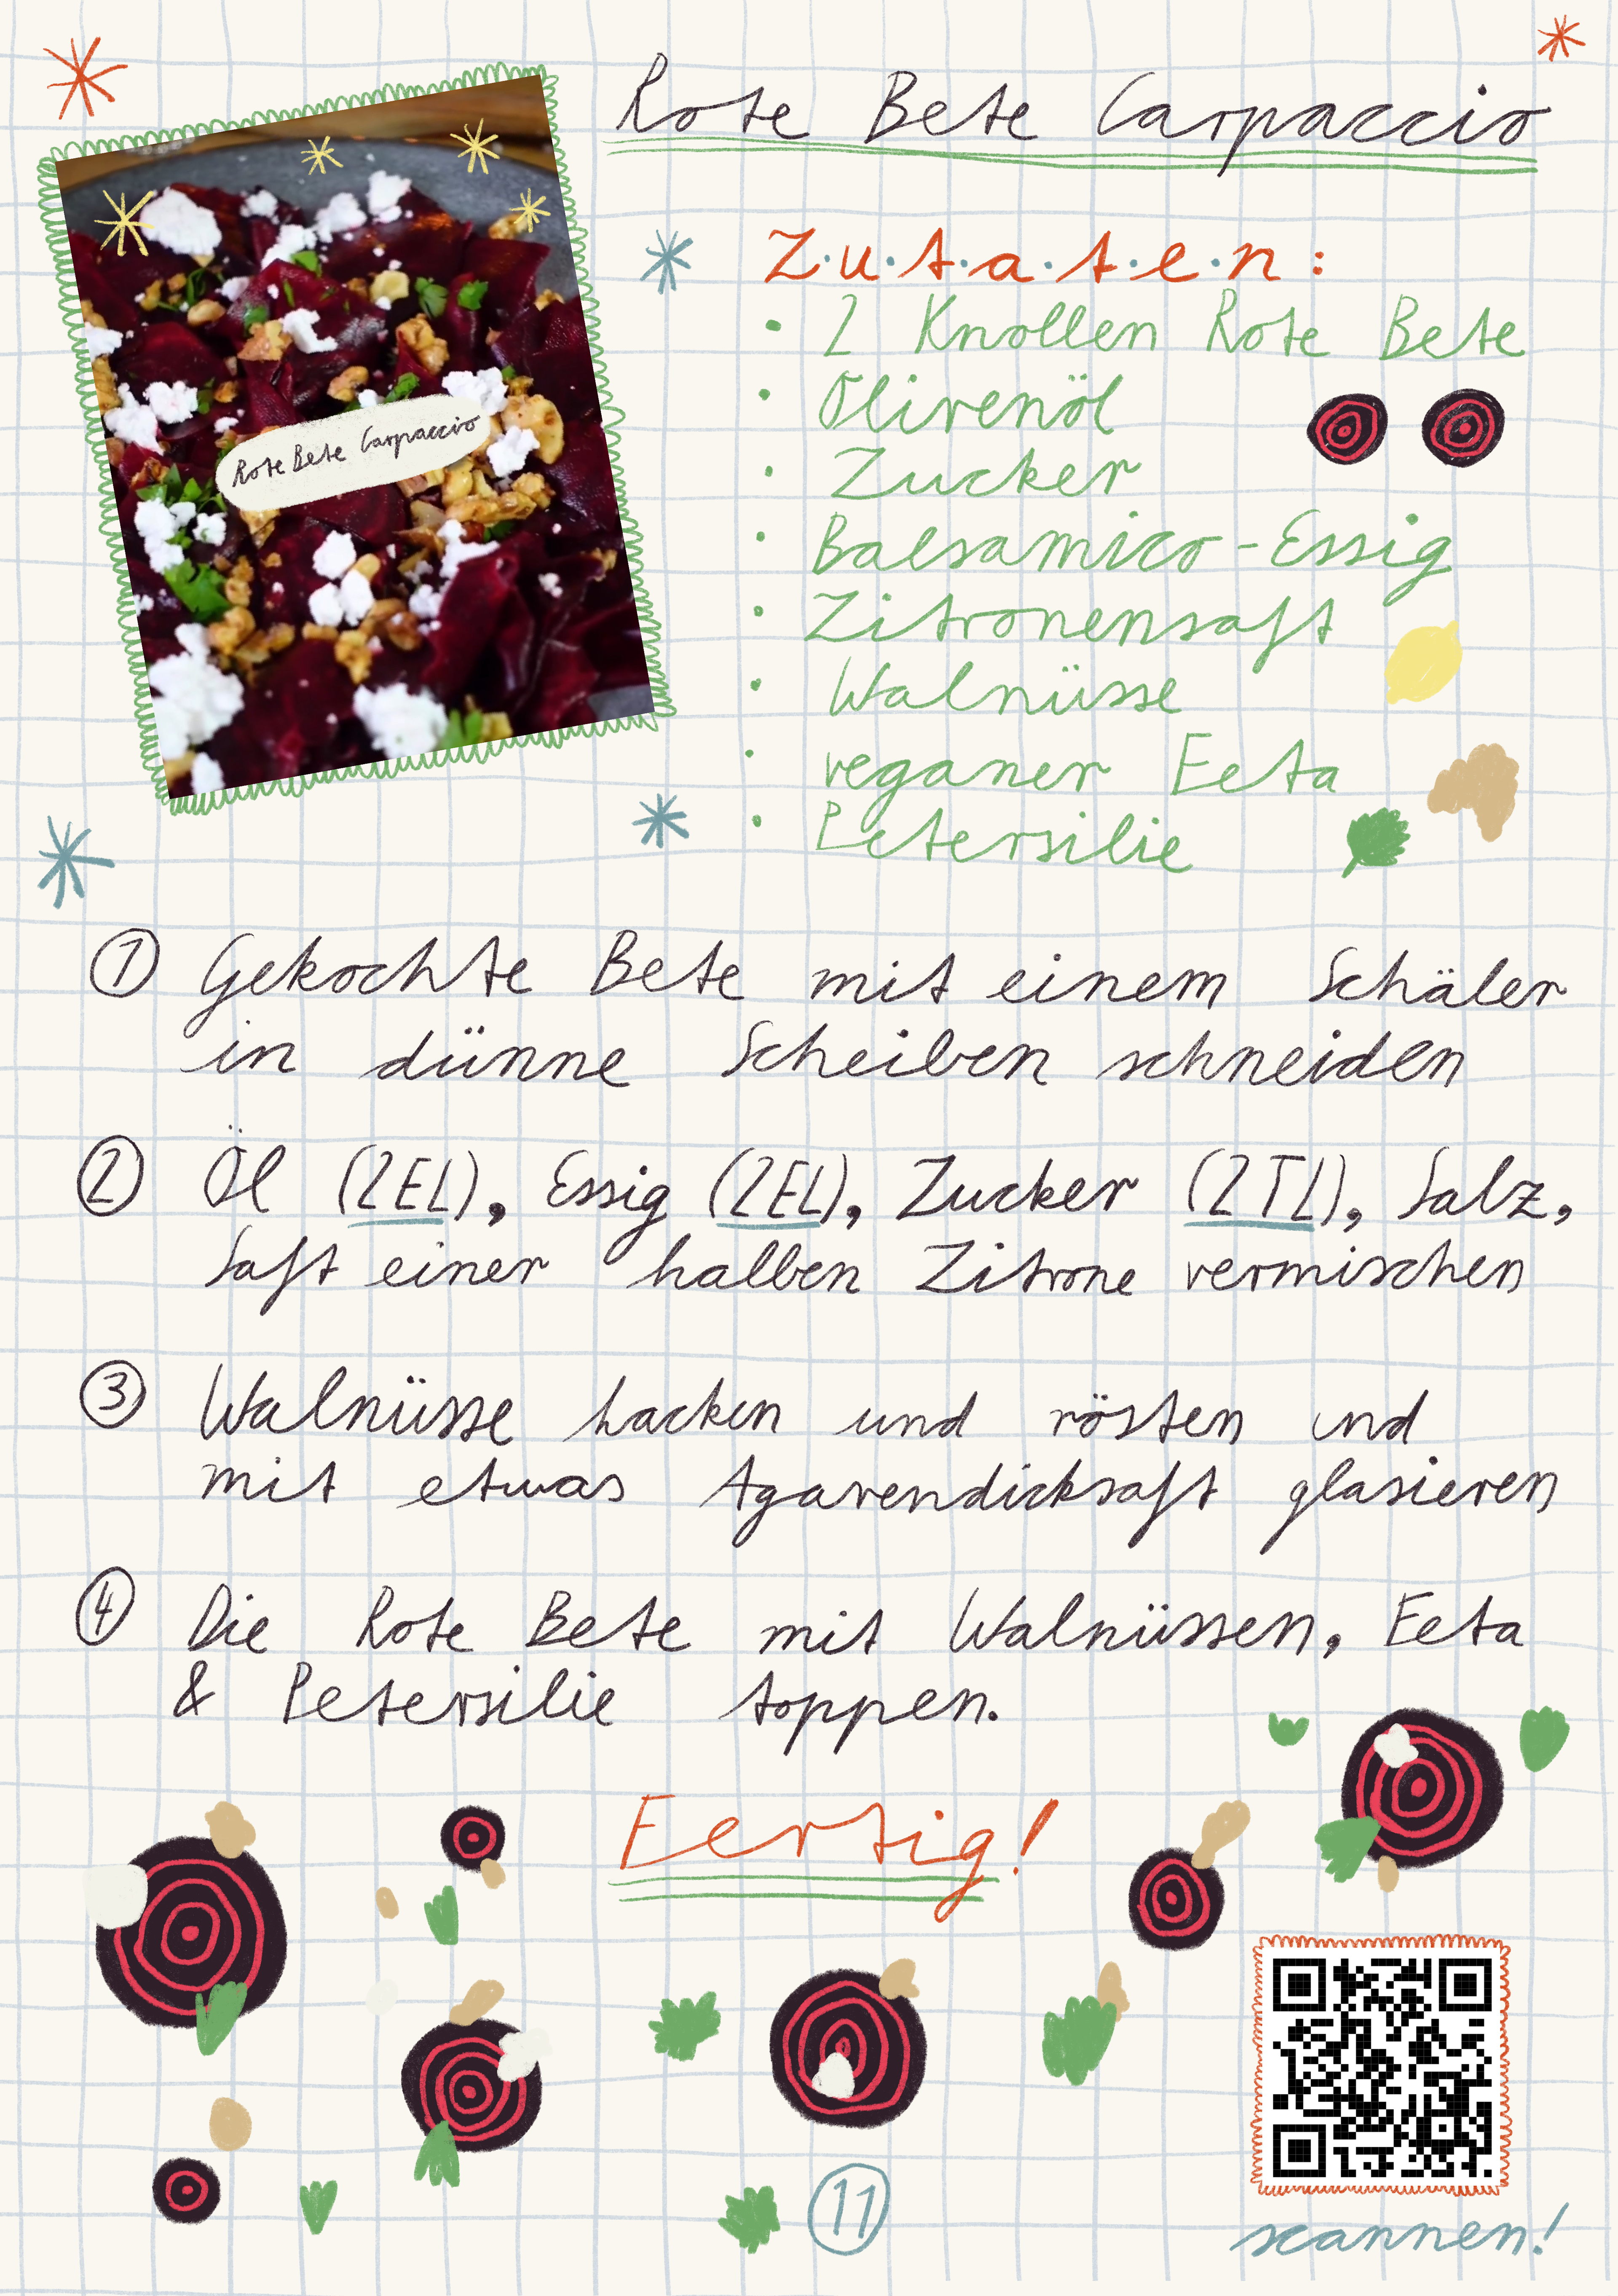 Rote Bete Carpaccio
Rote Bete Carpaccio
Z.u.t.a.t.e.n:
• 2 Knollen Rote Bete
• Olivenöl
• Zucker
• Balsamico-Essig
• Zitronensaft
• Walnüsse
• veganer Feta
• Petersilie
① Gekochte Bete mit einem Schäler
in dünne Scheiben schneiden
② Öl (2EL), Essig (2EL), Zucker (2TL), Salz,
Saft einer halben Zitrone vermischen
③ Walnüsse hacken und rösten und
mit etwas Agavendicksaft glasieren
④ Die Rote Bete mit Walnüssen, Feta
& Petersilie toppen.
Fertig!
11
scannen!